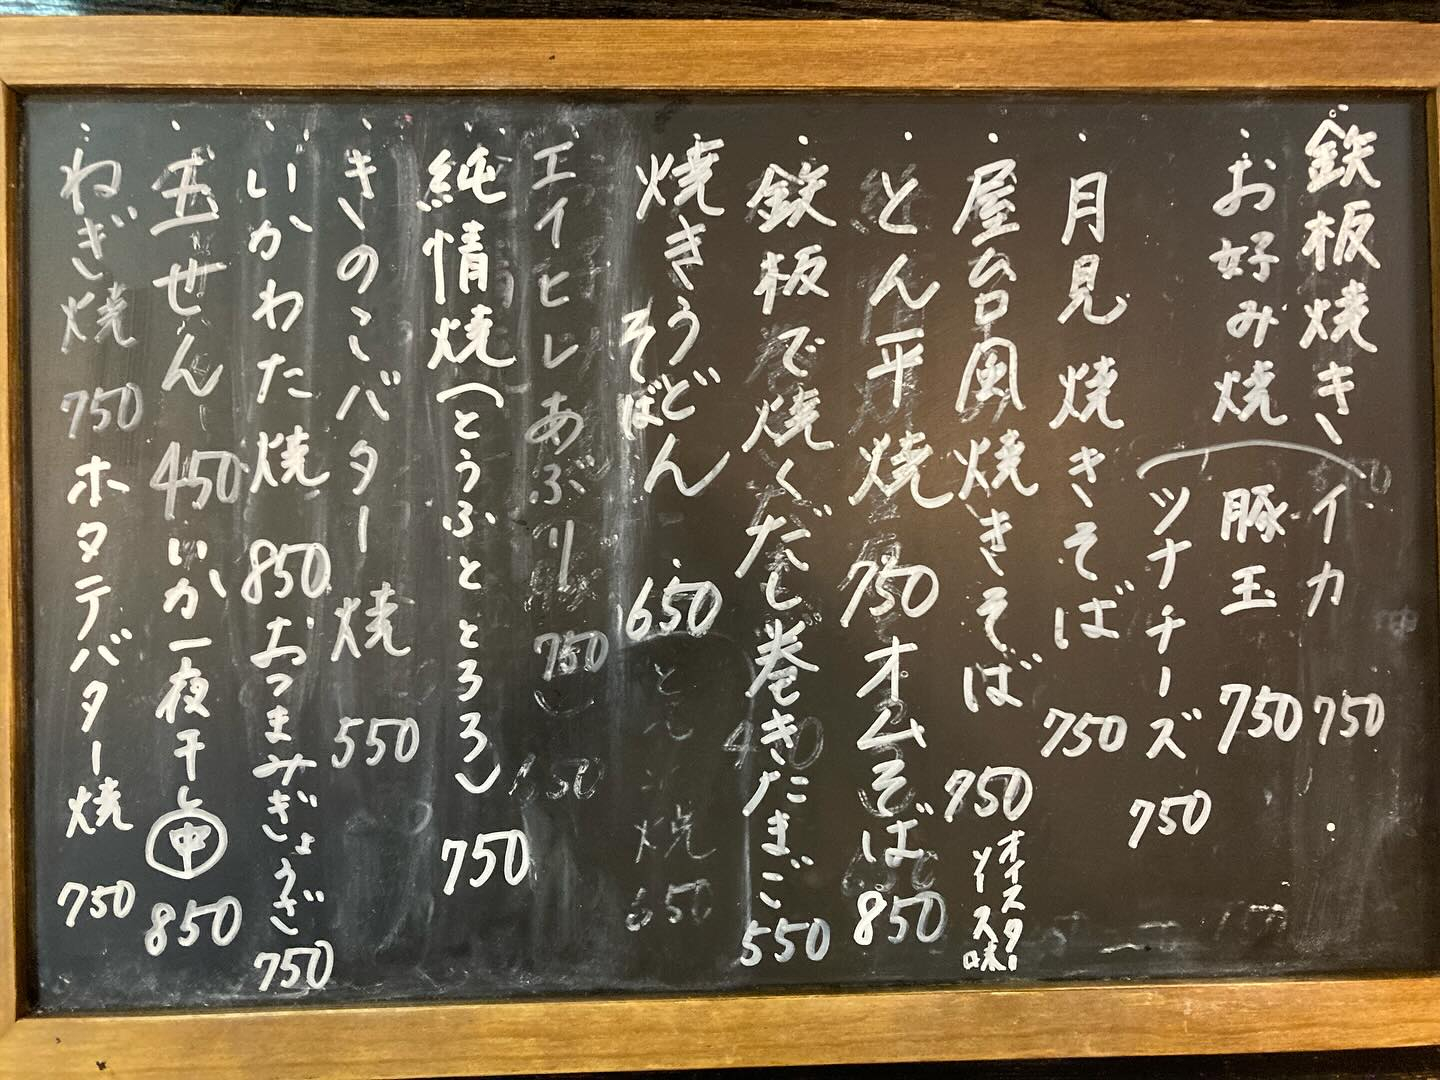 鉄板焼き
お好み焼
イカ 750
豚玉 750
ツナチーズ 750
月見焼きそば 750
屋台風焼きそば 750
オイスターソース味
とん平焼 750
オムそば 850
鉄板で焼くだし巻きたまご 550
焼きうどん 650
そば
エイヒレあぶり 750
純情焼(とうふととろろ) 750
きのこバター焼 550
いかわた焼 850
おつまみぎょうざ 750
玉せん 450
いか一夜干し 中 850
ねぎ焼 750
ホタテバター焼 750